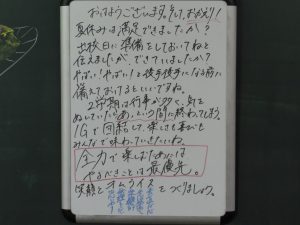 おはようございます。そして、おかえり!!
夏休みは満足できましたか?
出校日に準備をしておいてねと
伝えましたが、できていましたか?
やばい!やばい!と後手後手になる前に
備えておけるといいですね。
2学期は行事が多く、気を
ぬいていたらあっという間に終わってしまう。
1Gで団結して、楽しさも喜びも
みんなで味わっていきたいね。
全力で楽しむためには
やるべきことは最優先。
笑顔とオムライスをつくりましょう。